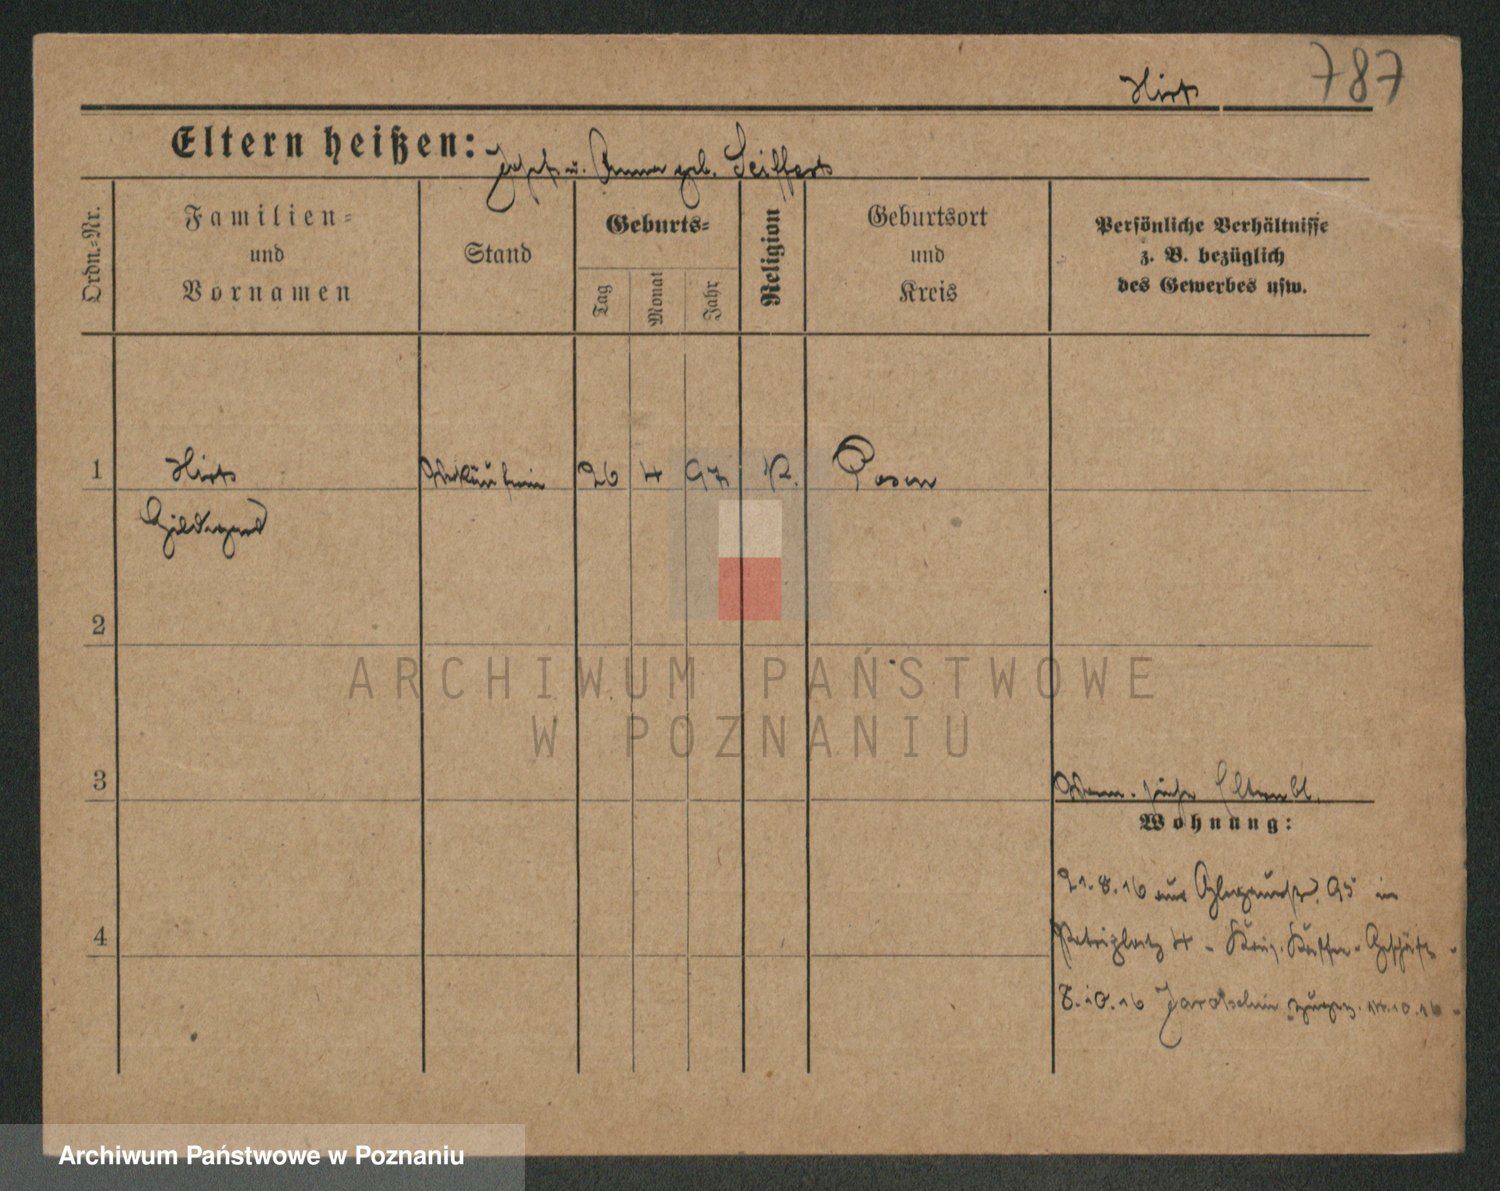 Hirt 787
Eltern heißen: Josef u. Anna geb. Seiffert
Ordn.=Nr.
Familien=
und
Vornamen
Stand
Geburts=
Tag
Monat
Jahr
Religion
Geburtsort
und
Kreis
Persönliche Verhältnisse
z. B. bezüglich
des Gewerbes usw.
1 Hirt Verkäuferin 26 4 97 Posen
Hildegard
2
3
siehe Elternbl.
Wohnung:
21.8.16 aus Glogauerstr. 95 in
Petriplatz 4 - Kais. Kaffee-Geschäft -
8.10.16 Jarotschin
4
ARCHIWUM PAŃSTWOWE
W POZNANIU
Archiwum Państwowe w Poznaniu